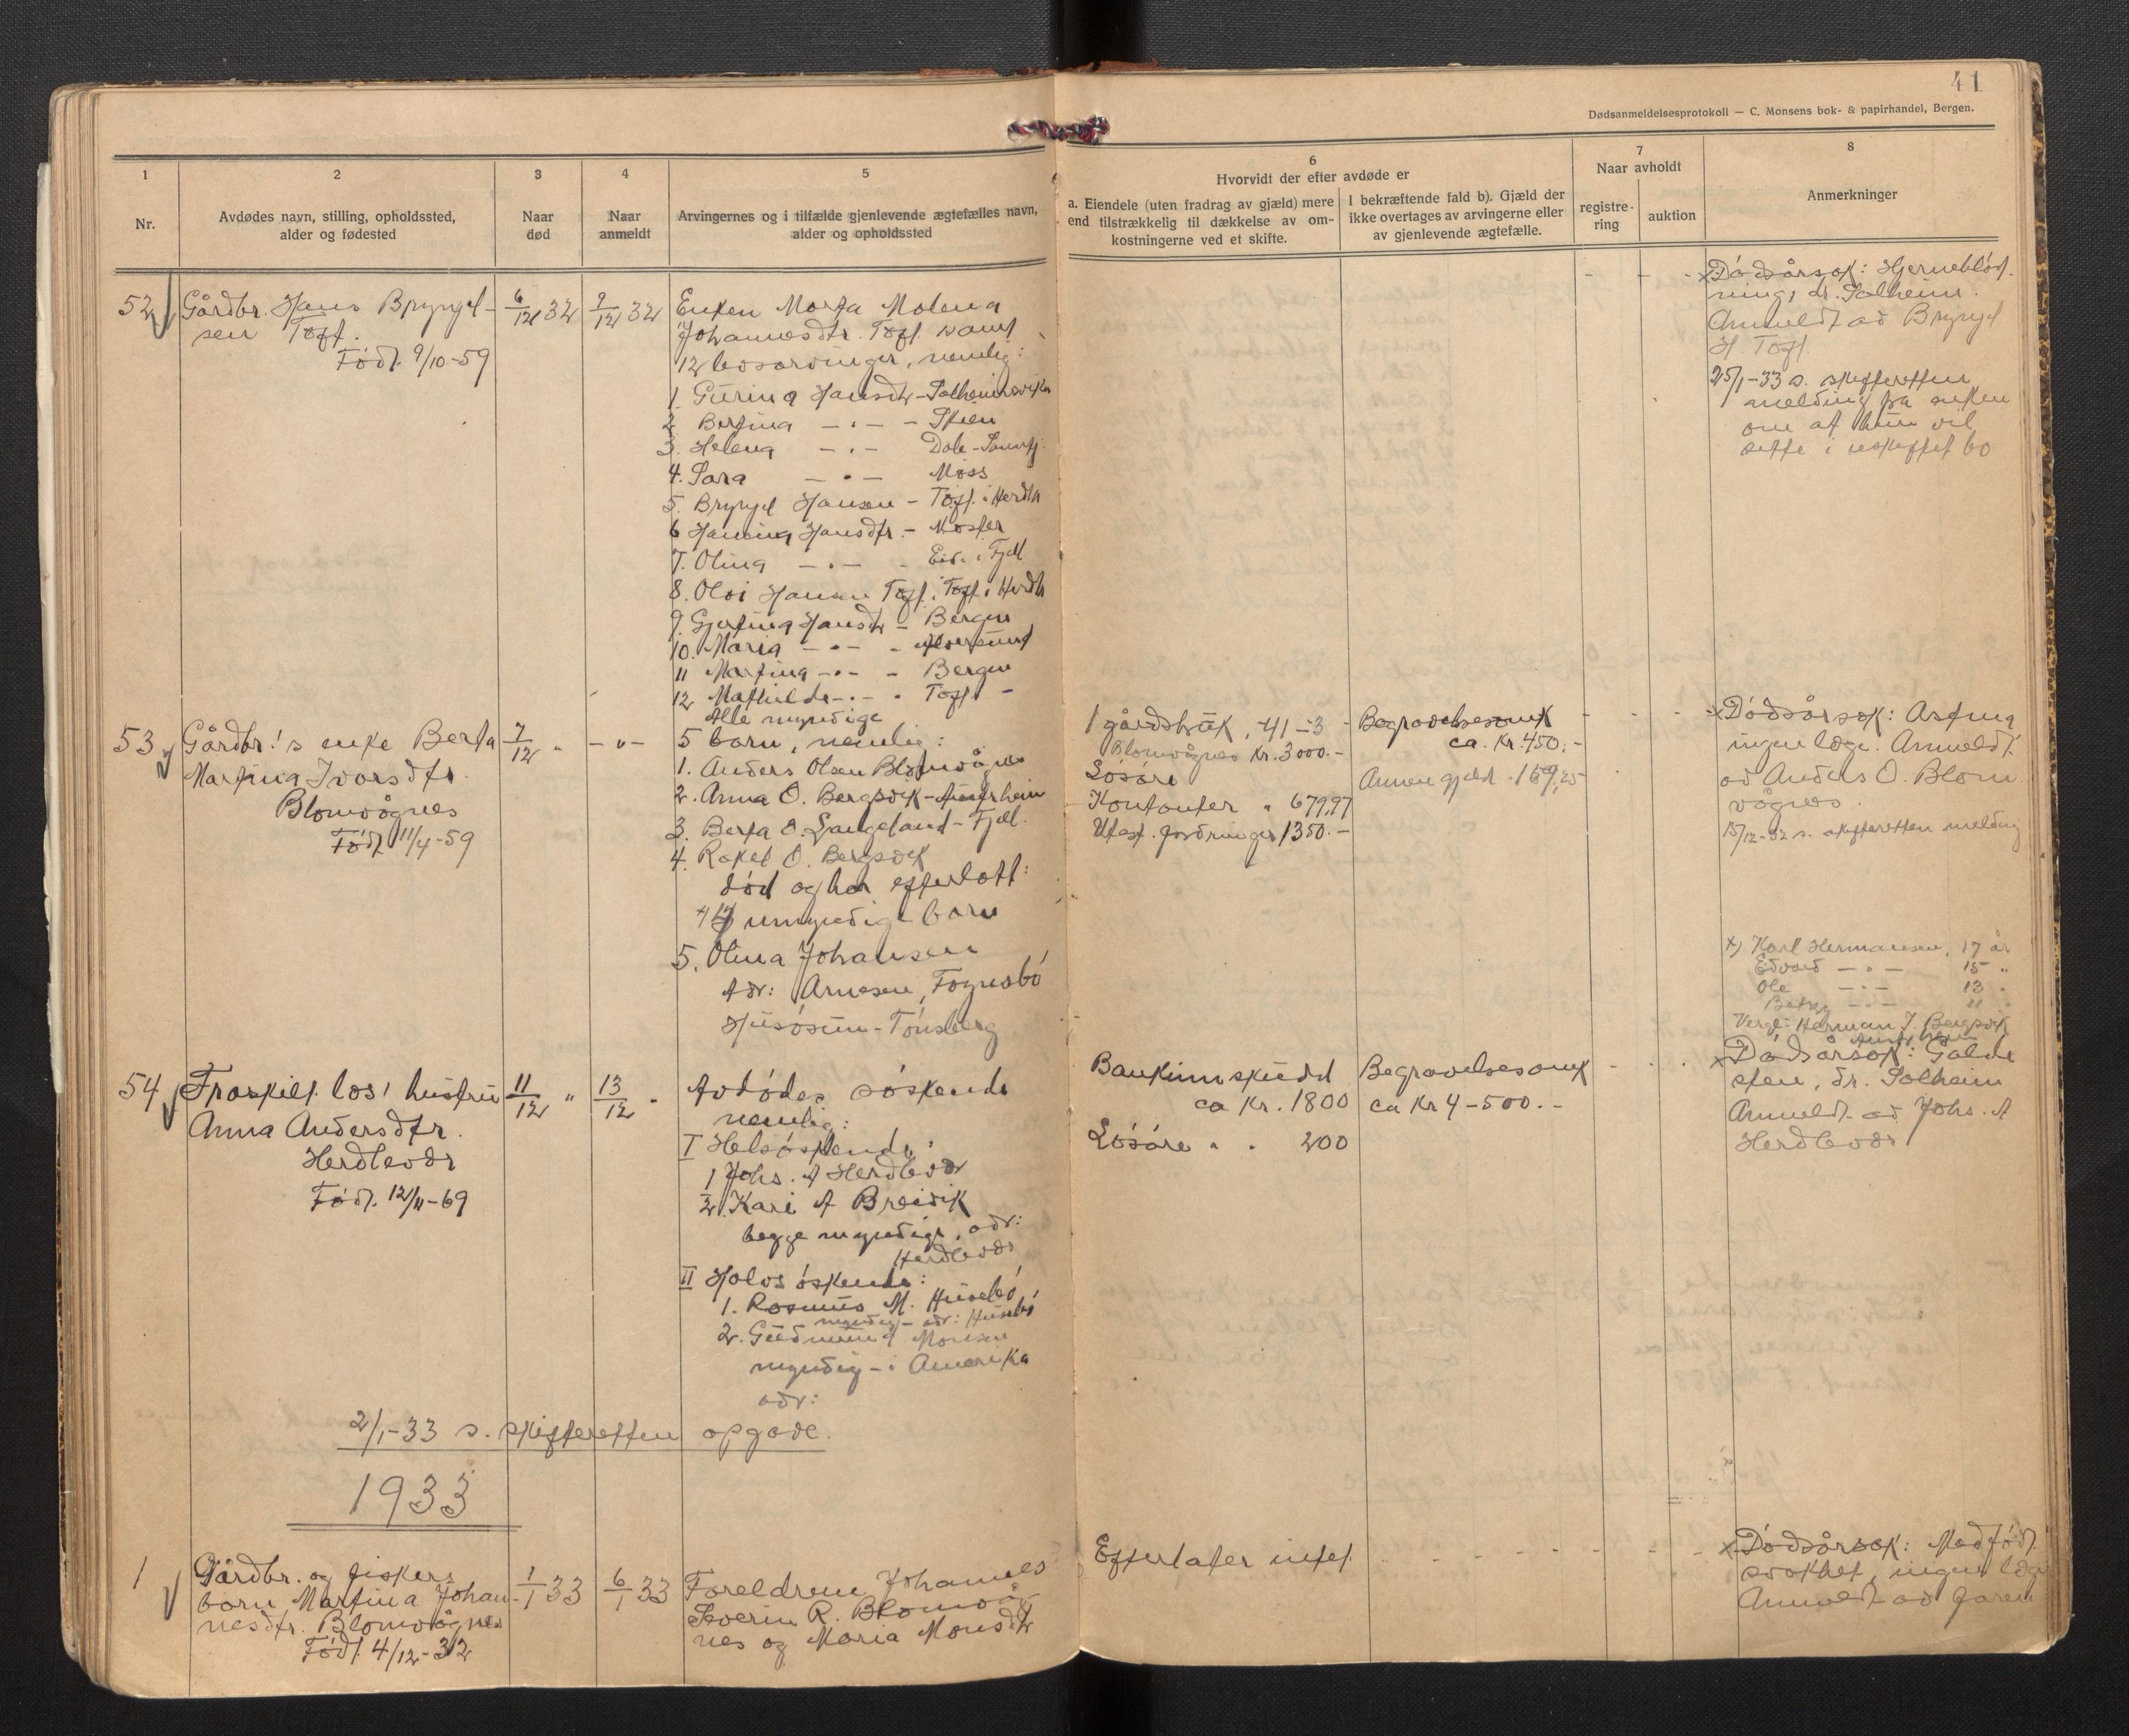 41
Dødsanmeldelsesprotokoll — C. Monsens bok- & papirhandel, Bergen.
1
Nr.
2
Avdødes navn, stilling, opholdssted,
alder og fødested
3
Naar
død
4
Naar
anmeldt
5
Arvingernes og i tilfælde gjenlevende ægtefælles navn,
alder og opholdssted
6
Hvorvidt der efter avdøde er
a. Eiendele (uten fradrag av gjæld) mere
end tilstrækkelig til dækkelse av om-
kostningerne ved et skifte.
I bekræftende fald b). Gjæld der
ikke overtages av arvingerne eller
av gjenlevende ægtefælle.
7
Naar avholdt
registre-
ring
auktion
8
Anmerkninger
52
Gårdbr. Hans Bryngel-
sen Toft.
Født 9/10-59
6/12 32
9/12 32
Enken Marta Malena
Johannesdtr. Toft samt
12 livsarvinger, nemlig:
1. Gurina Hansdtr - Solheimsviken
2. Bertina — " — - Skien
3. Helena — " — Dale - Sunnfj.
4. Sara — " — Moss
5. Bryngel Hansen - Toft i Herdla
6 Hansina Hansdtr. - Moster
7. Olina — " — - Eide i Fjell
8. Olai Hansen Toft. Toft i Herdla
9. Gjertina Hansdtr - Bergen
10. Maria — " — - Alversund
11 Martina — " — - Bergen
12 Mathilde — " — - Toft -
Alle myndige
x Dødsårsak: Hjerneblød-
ning, dr. Solheim.
Anmeldt av Bryngel
H. Toft.
25/1-33 s. skifteretten
melding fra enken
om at hun vil
sitte i uskiftet bo
53
Gårdbr.'s enke Berta
Martina Ivarsdtr.
Blomvågnes
Født 11/4-59
7/12 "
— " —
5 barn, nemlig:
1. Anders Olsen Blomvågnes
2. Anna O. Bergsvik - Austrheim
3. Berta O. Langeland - Fjell.
4. Rakel O. Bergsvik
død og har efterlatt:
x) 4 umyndige barn
5. Olina Johansen
Adr: Arnesen, Fognesbø
Husøsun - Tønsberg
1 gårdsbruk, 41-3 -
Blomvågnes Kr. 3000.-
Løsøre
Kontanter " 679,97
Utest. fordringer 1350.-
Begravelsesomk
ca. Kr. 450.-
Annen gjeld - 169,25
x Dødsårsak: Astma
ingen læge. Anmeldt
av Anders O. Blom-
vågnes.
15/12-32 s. skifteretten melding
x) Karl Hermansen, 17 år
Edvard — " — 15 "
Ole — " — 13 "
Betzy — " — 11 "
Verge: Herman J. Bergsvik
Austrheim
54
Fraskilt los' hustru
Anna Andersdtr.
Herdlevær
Født 12/11-69
11/12 "
13/12 "
Avdødes søskende
nemlig:
I Helsøskende:
1 Johs. A Herdlevær
2. Kari A Breivik
begge myndige, adr:
Herdlevær
II Halvsøskende:
1. Rasmus M. Husebø
myndig - adr: Husebø
2. Gudmund Monsen
myndig - i Amerika
adr:
Bankinnskudd
ca Kr. 1800
Løsøre " " 200
Begravelsesomk
ca Kr 4-500.-
x Dødsårsak: Galde
sten, dr. Solheim
Anmeldt av Johs. A
Herdlevær
2/1-33 s. skifteretten opgave.
1933
1
Gårdbr. og fiskers
barn Martina Johan-
nesdtr. Blomvågnes
Født 4/12-32
1/1 33
6/1 33
Foreldrene Johannes
Severin R. Blomvåg-
nes og Maria Monsdtr
Efterlater intet
x Dødsårsak: Medfødt
svakhet, ingen læge
Anmeldt av faren